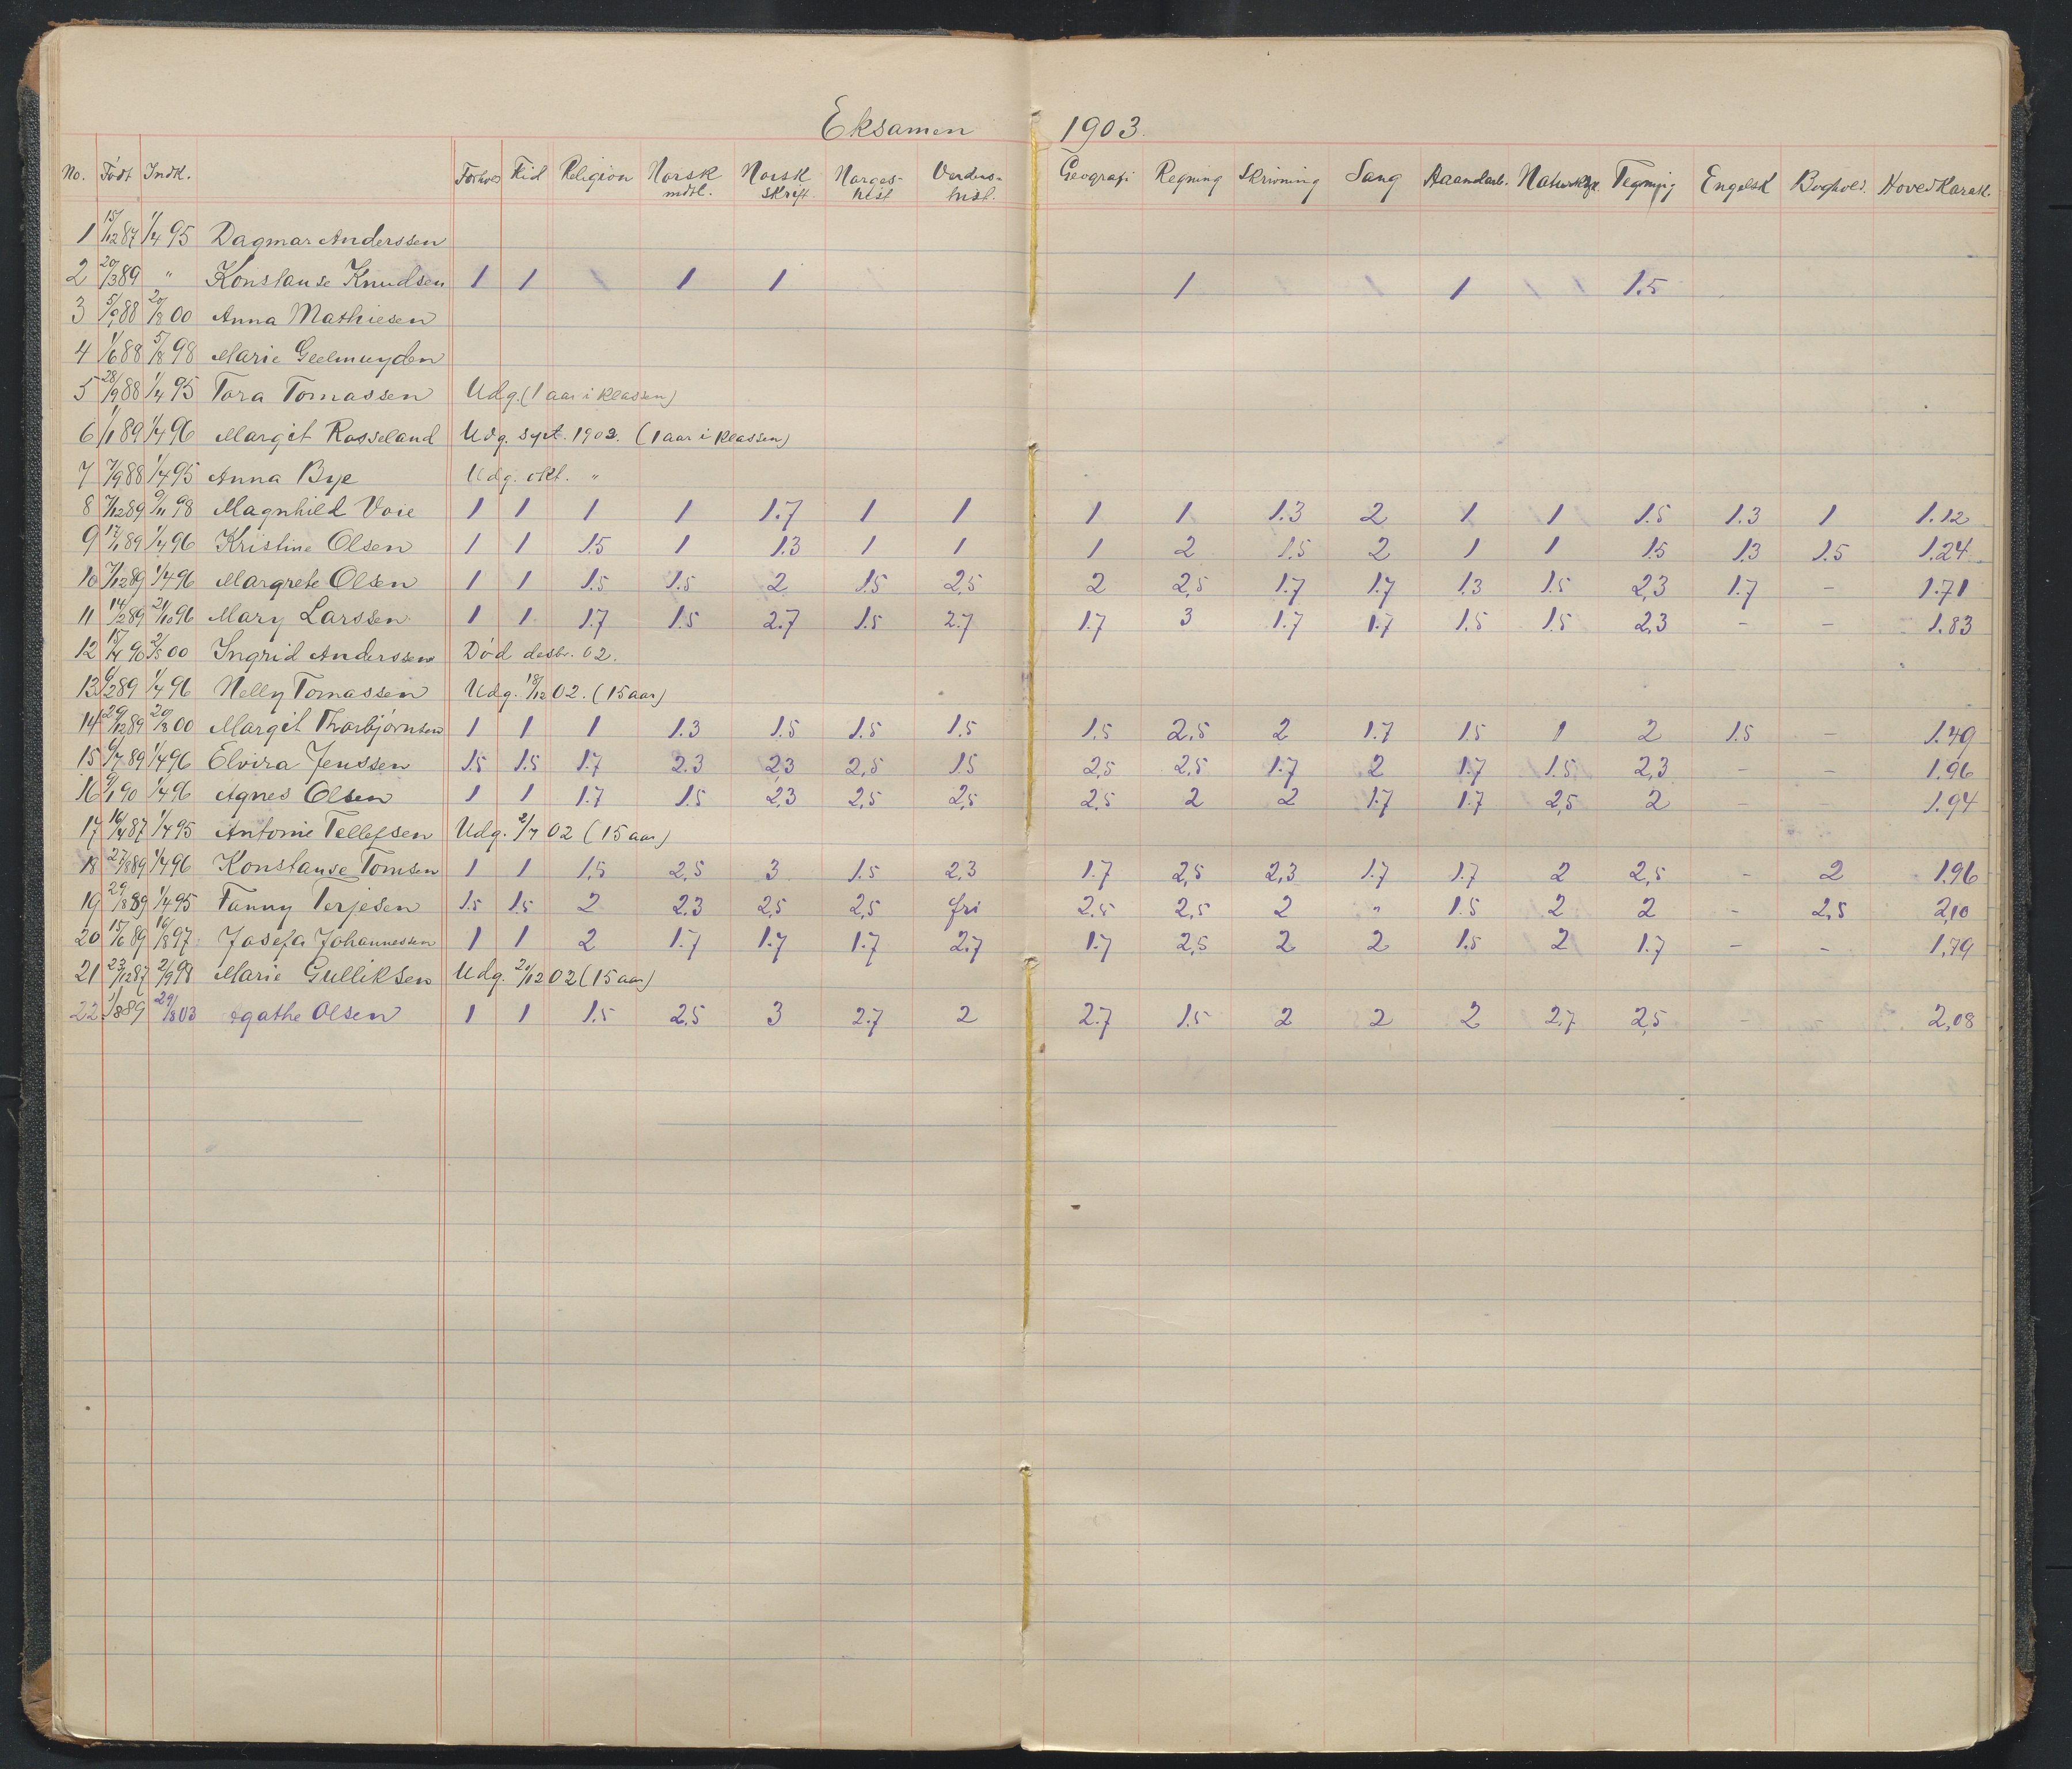 Eksamen 1903.
No. Født Indk. Forhold Flid Religion Norsk mdtl. Norsk skrift. Norges-hist Verdens-hist. Geografi Regning Skrivning Sang Haandarb. Naturk. Tegning Engelsk Boghold. Hovedkarakt.
1 15/12 87 1/4 95 Dagmar Anderssen
2 20/3 89 " Konstanse Knudsen 1 1 1 1 1 1 1.5
3 5/9 88 20/8 00 Anna Mathiesen
4 1/6 88 5/8 98 Marie Geelmuyden
5 28/9 88 1/4 95 Tora Tomassen Udg. (1 aar i klassen)
6 1/1 89 1/4 96 Margit Rosseland Udg. sept. 1902. (1 aar i klassen)
7 7/9 88 1/4 95 Anna Bye Udg. okt. "
8 7/12 89 9/11 98 Magnhild Voie 1 1 1 1 1.7 1 1 1 1 1.3 2 1 1 1.5 1.3 1 1.12
9 17/1 89 1/4 96 Kristine Olsen 1 1 1.5 1 1.3 1 1 1 2 1.5 2 1 1 1.5 1.3 1.5 1.24
10 7/12 89 1/4 96 Margrete Olsen 1 1 1.5 1.5 2 1.5 2,5 2 2,5 1.7 1.7 1.3 1.5 2,3 1.7 – 1.71
11 14/2 89 21/10 96 Mary Larssen 1 1 1.7 1.5 2.7 1.5 2.7 1.7 3 1.7 1.7 1.5 1.5 2,3 – – 1.83
12 15/4 90 2/5 00 Ingrid Anderssen Död desbr. 02.
13 6/2 89 1/4 96 Nelly Tomassen Udg. 18/12 02. (15 aar)
14 29/12 89 20/8 00 Margit Thorbjørnsen 1 1 1 1.3 1.5 1.5 1.5 1.5 2,5 2 1.7 1.5 1 2 1.5 – 1.49
15 6/7 89 1/4 96 Elvira Jenssen 1.5 1.5 1.7 2.3 2,3 2,5 1.5 2,5 2,5 1.7 2 1.7 1.5 2,3 – – 1.96
16 9/1 90 1/4 96 Agnes Olsen 1 1 1.7 1.5 2,3 2,5 2,5 2,5 2 2 1.7 1.7 2,5 2 – – 1.94
17 16/4 87 1/4 95 Antonie Tellefsen Udg. 2/7 02 (15 aar)
18 27/8 89 1/4 96 Konstanse Tomsen 1 1 1,5 2,5 3 1.5 2,3 1.7 2,5 2,3 1.7 1.7 2 2,5 – 2 1.96
19 29/8 89 1/4 95 Fanny Terjesen 1.5 1.5 2 2.3 2,5 2,5 fri 2.5 2,5 2 " 1.5 2 2 – 2,5 2,10
20 15/6 89 16/8 97 Josefa Johannessen 1 1 2 1.7 1.7 1.7 2.7 1.7 2,5 2 2 1.5 2 1.7 – – 1,79
21 23/12 87 2/9 98 Marie Gulliksen Udg. 20/12 02 (15 aar)
22 1/8 89 29/8 03 Agathe Olsen 1 1 1.5 2,5 3 2.7 2 2.7 1.5 2 2 2 2.7 2,5 – – 2,08